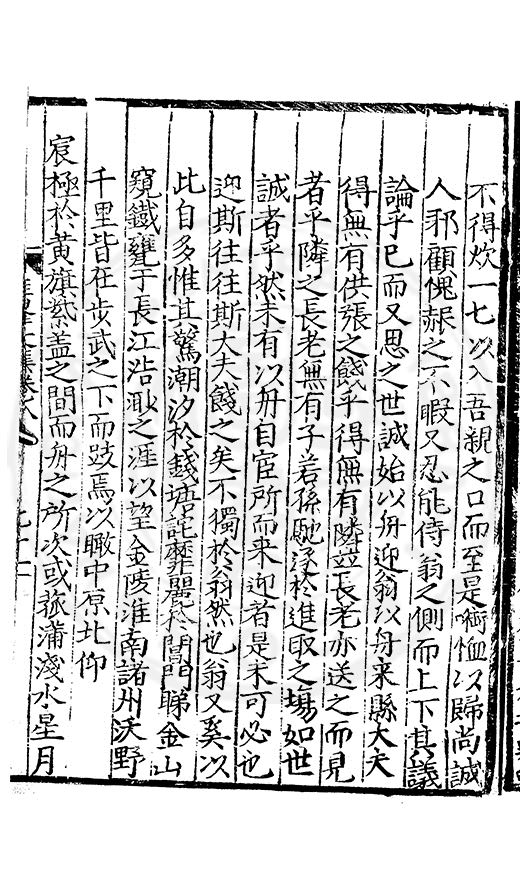 不得炊一七以入吾親之口而至是銜恤以歸尚誠
人邪顧愧赧之不暇又忍能侍翁之側而上下其議
論乎已而又思之世誠始以舟迎翁以舟来縣大夫
得無有供張之餞乎得無有隣並長老亦送之而見
者乎隣之長老無有子若孫馳逐於進取之塲如世
誠者乎然未有以舟自宦所而来迎者是未可必也
迎斯往往斯大夫餞之矣不獨於翁然也翁又奚以
此自多惟其驚潮汐於錢塘詫靡麗於閶門睇金山
窺鐵甕于長江浩渺之涯以望金陵淮南諸州沃野
千里皆在步武之下而跂焉以瞰中原北仰
宸極於黄旗紫盖之間而舟之所次或菰蒲淺水星月
文集卷八